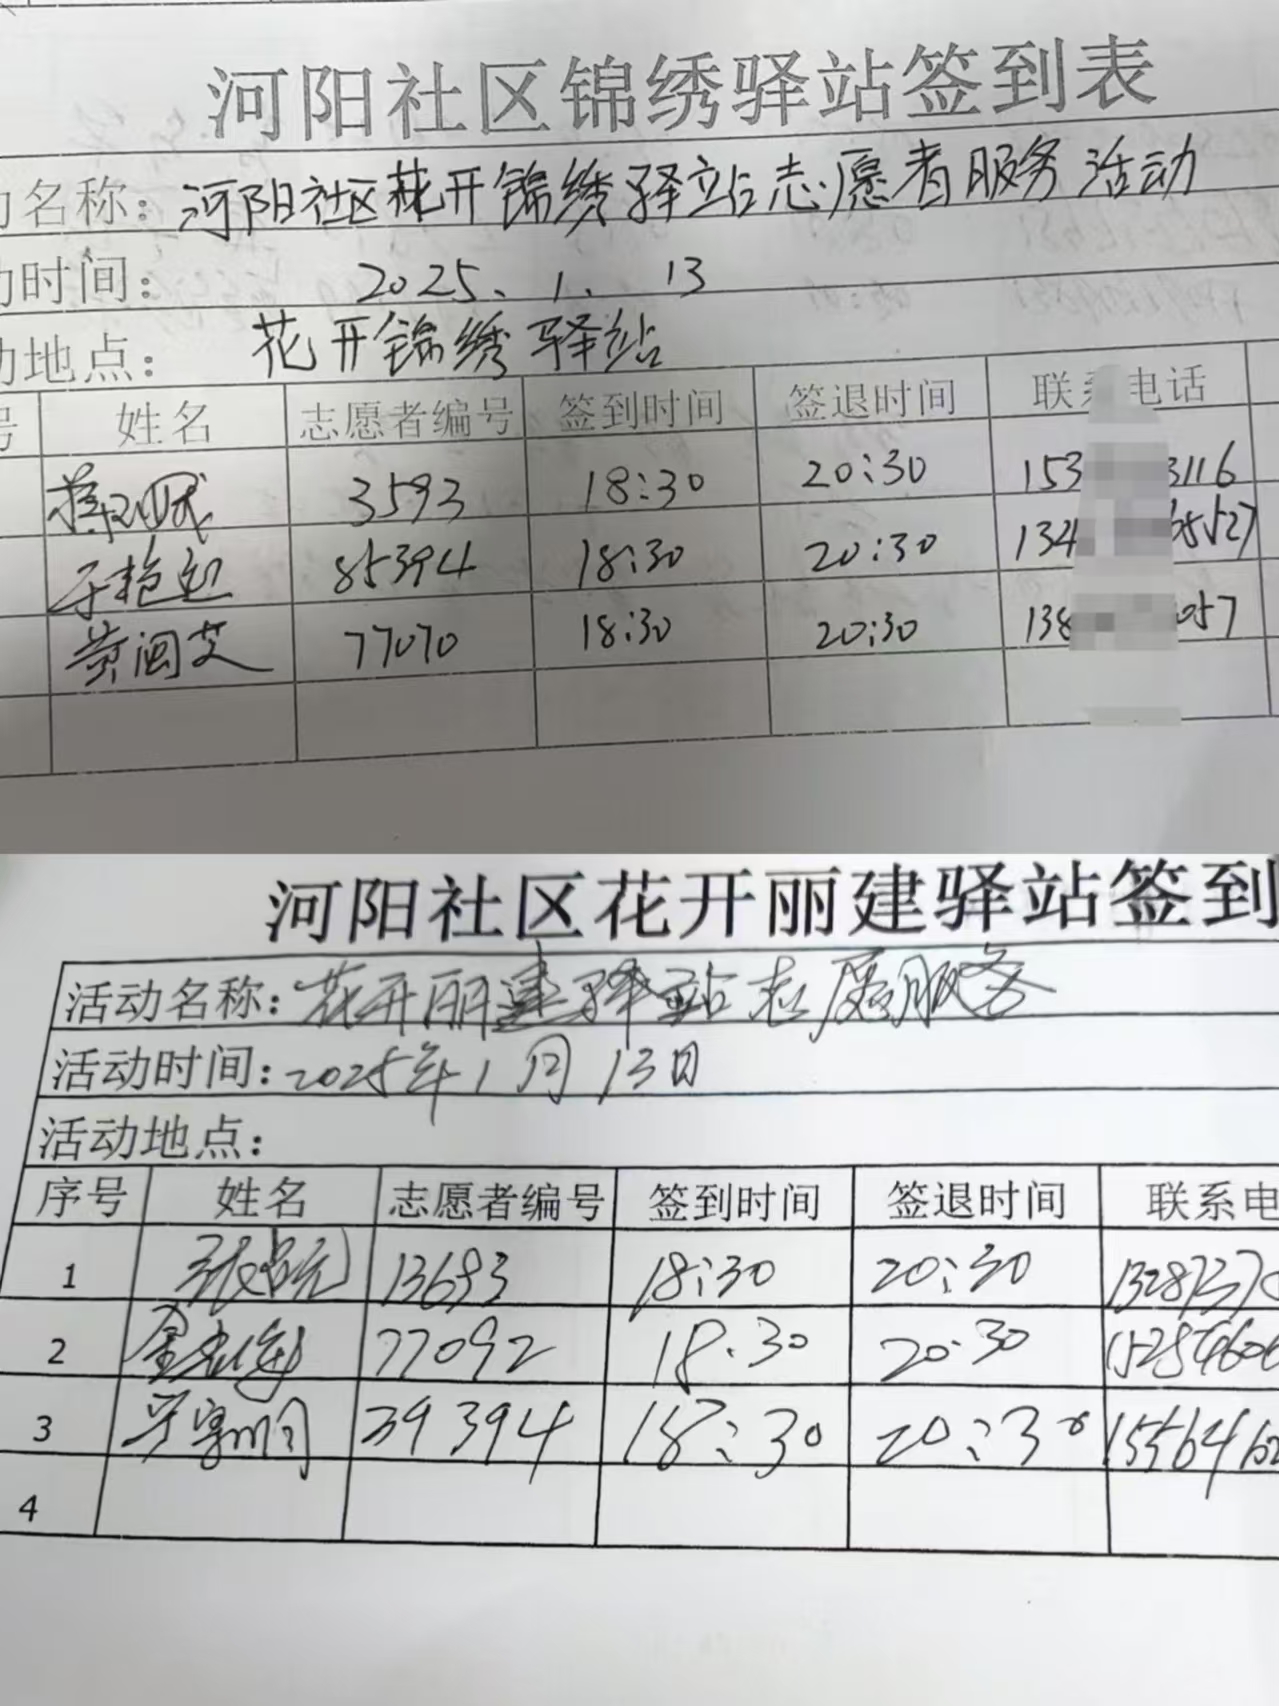 河阳社区锦绣驿站签到表
动名称：河阳社区花开锦绣驿站志愿者服务活动
动时间： 2025、1、13
动地点： 花开锦绣驿站
号 姓名 志愿者编号 签到时间 签退时间 联系电话
3593 18:30 20:30 153 3116
于艳 85394 18:30 20:30 134 65527
黄闽艾 77070 18:30 20:30 138 057
河阳社区花开丽建驿站签到
活动名称：花开丽建驿站志愿服务
活动时间：2025年1月13日
活动地点：
序号 姓名 志愿者编号 签到时间 签退时间 联系电
1 张 13693 18:30 20:30
2 金 77092 18:30 20:30
3 39394 18:30 20:30
4